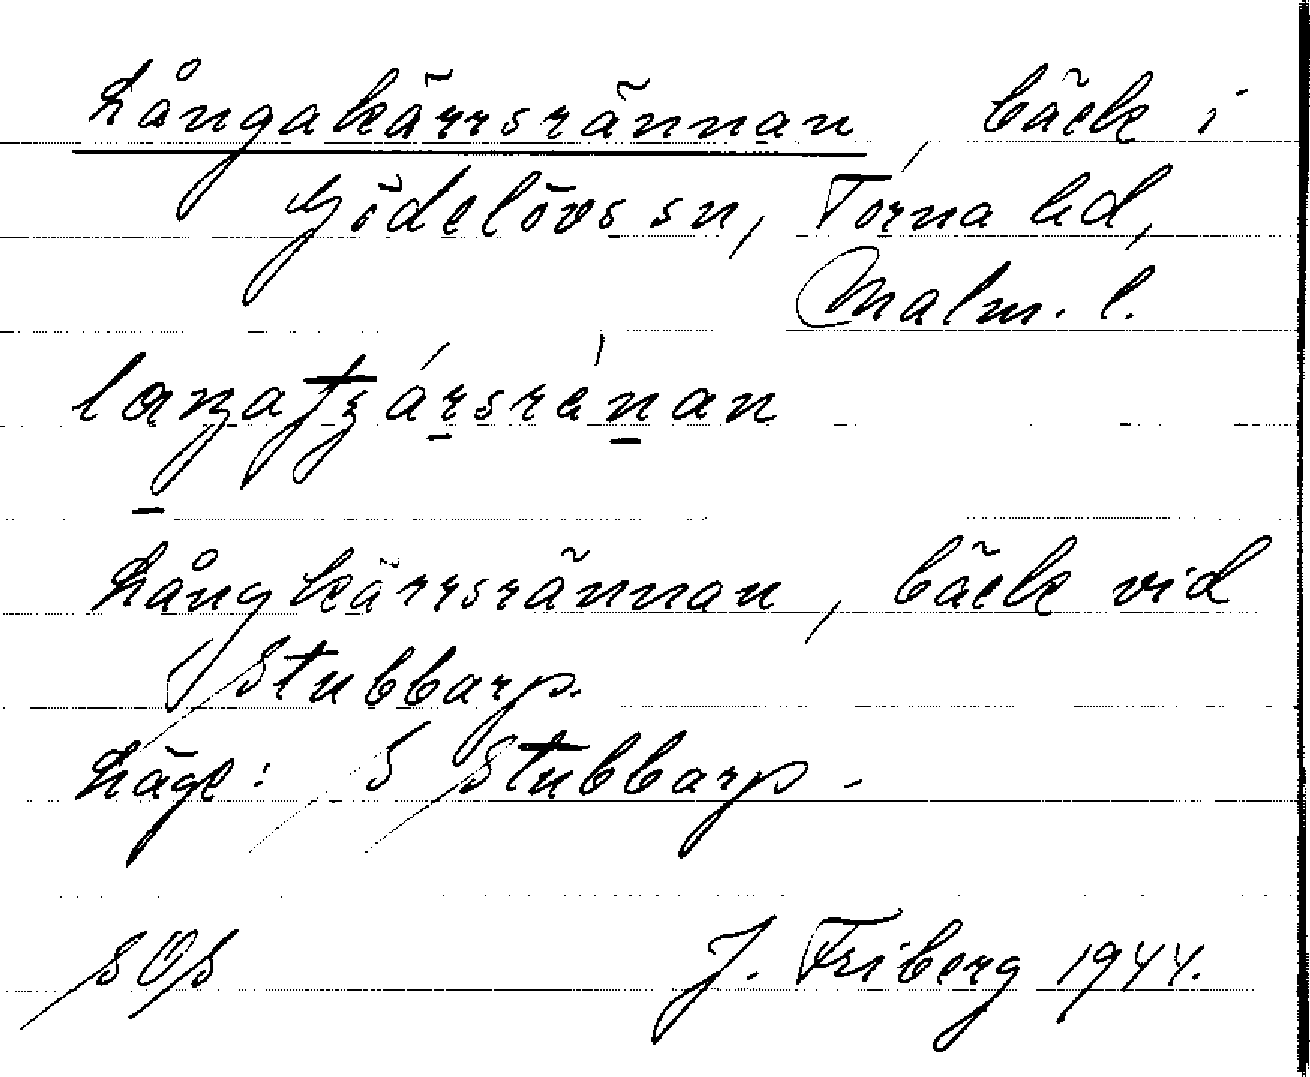 Långakärrsrännan, bäck i
Gödelövs sn, Torna hd,
Malm. l.
Långkärrsrännan, bäck vid
Stubbarp.
Läge: S Stubbarp.
SOS J. Friberg 1944.